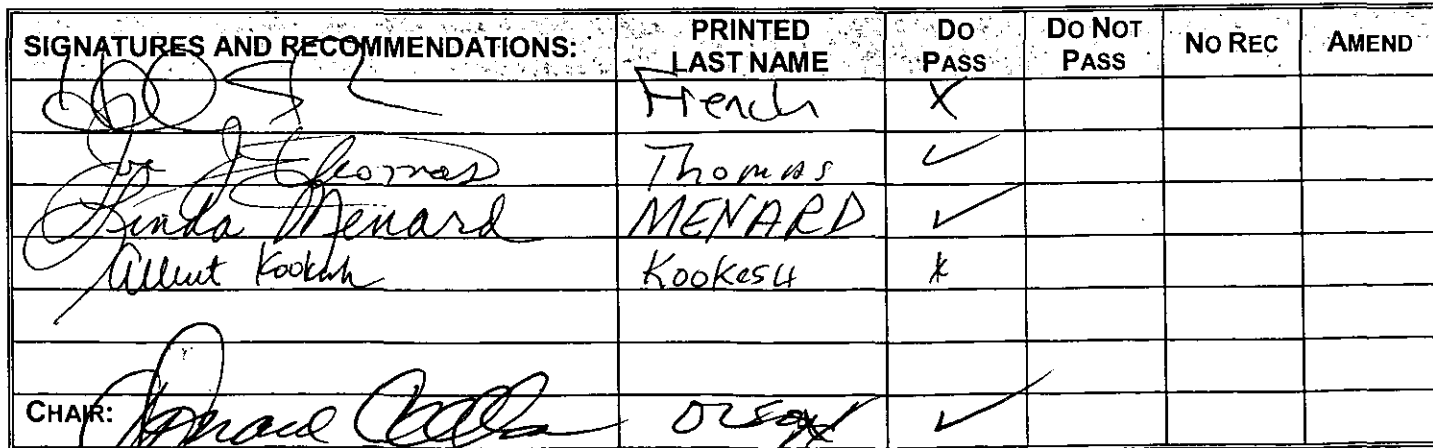 SIGNATURES AND RECOMMENDATIONS: PRINTED LAST NAME DO PASS DO NOT PASS NO REC AMEND
French X
Joe J Thomas Thomas ✓
Linda Menard MENARD ✓
Albert Kookesh Kookesh X
CHAIR: Olson ✓